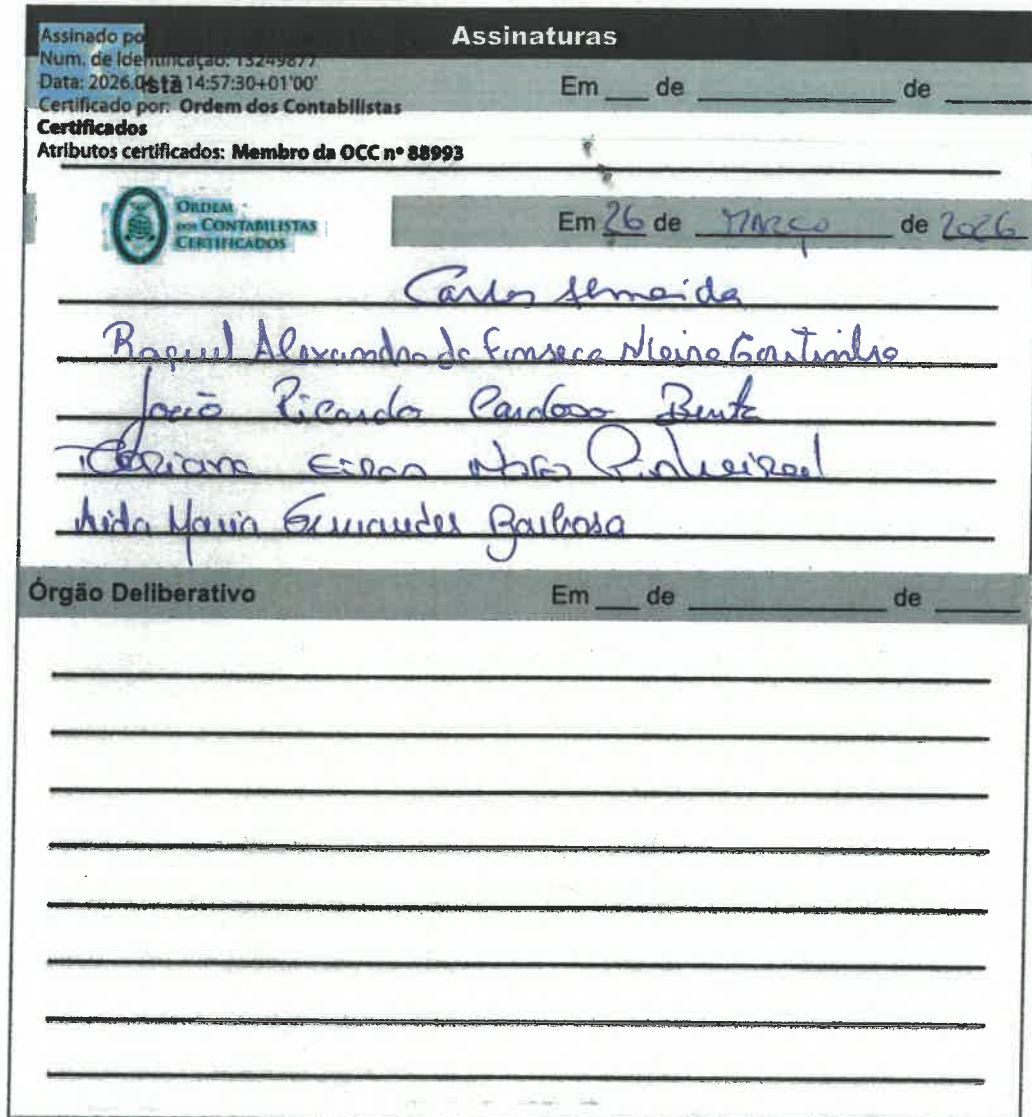 Assinaturas
Assinado po
Num. de Identificação: 13249877
Data: 2026.0 14:57:30+01'00'
Em ___ de ___ de ___
Certificado por: Ordem dos Contabilistas
Certificados
Atributos certificados: Membro da OCC nº 88993
ORDEM
DOS CONTABILISTAS
CERTIFICADOS
Em 26 de MARÇO de 2026
Carlos Almeida
Raquel Alexandra da Fonseca Coutinho
João Ricardo Cardoso Bento
Pinheiro
Aida Maria Fernandes Barbosa
Órgão Deliberativo Em ___ de ___ de ___